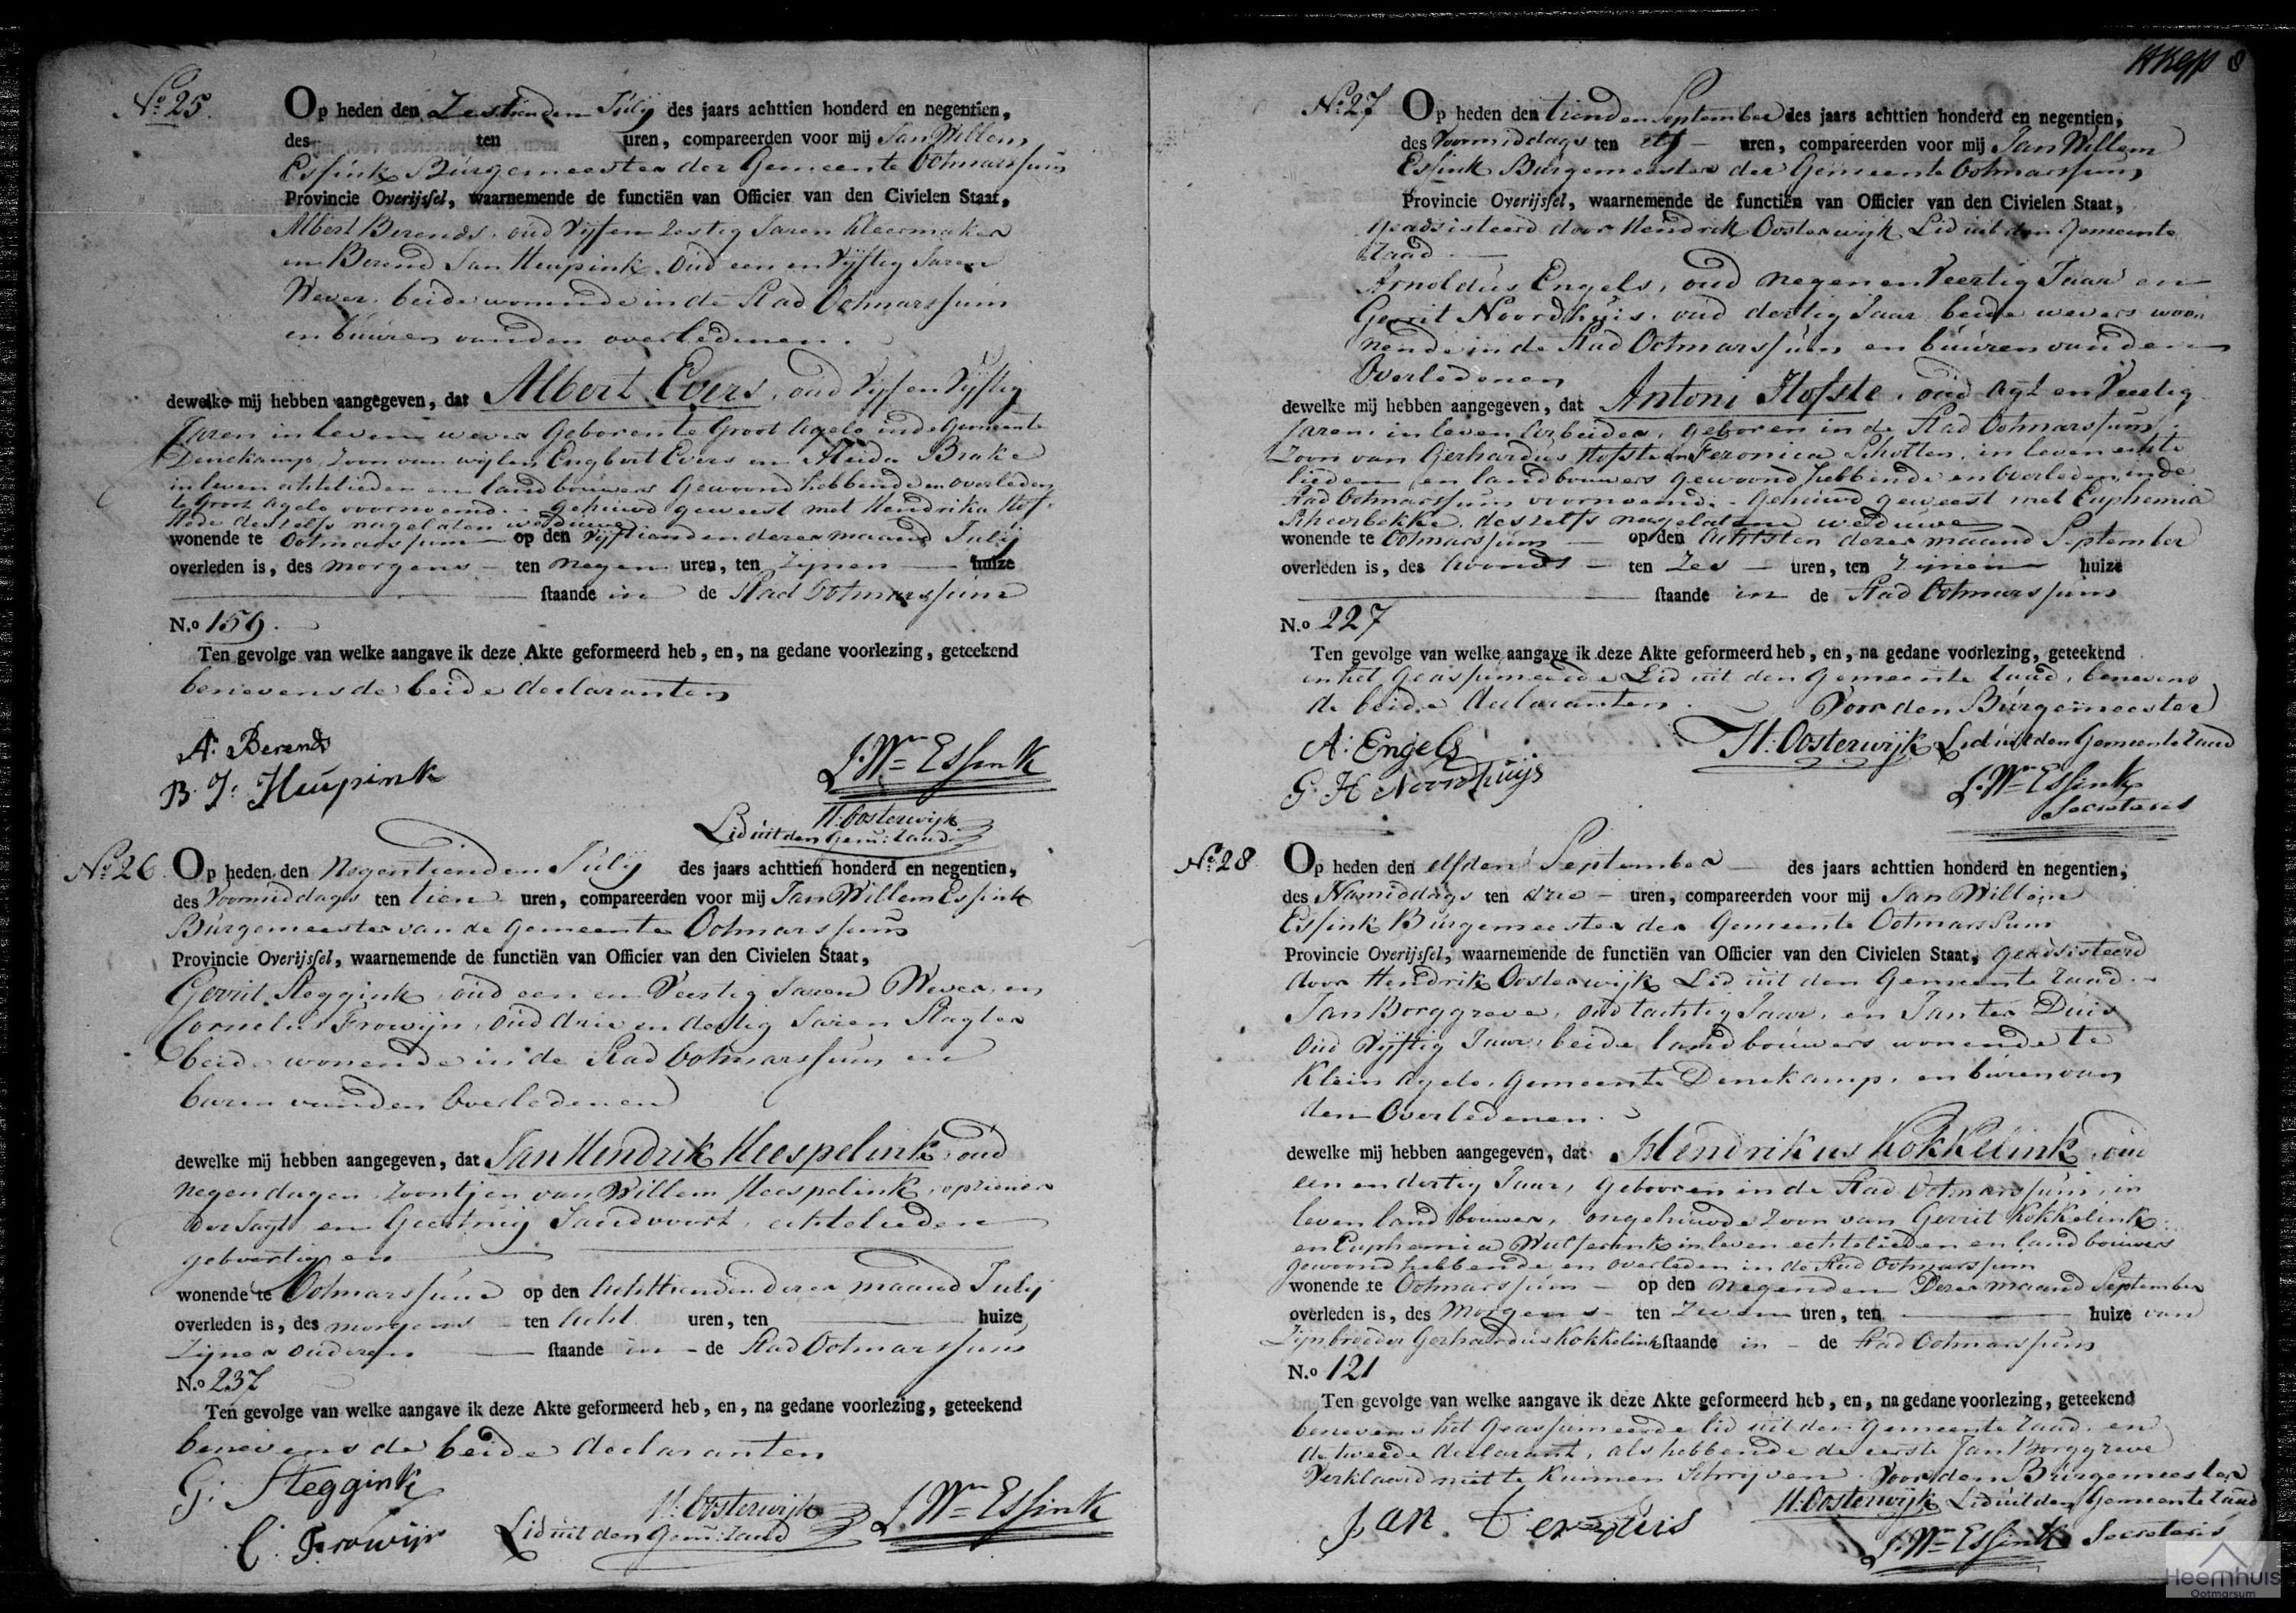 No. 25.
Op heden den Zestienden Julij des jaars achttien honderd en negentien,
des ten uren, compareerden voor mij Jan Willem
Essink Burgemeester der Gemeente Ootmarssum
Provincie Overijssel, waarnemende de functiën van Officier van den Civielen Staat,
Albert Berends, oud Vijf en Zestig Jaren Kleermaker
en Berend Jan Heupink. Oud een en Vijftig Jaren
Wever. beide wonende in de Stad Ootmarssum
en buuren van den overledenen.
dewelke mij hebben aangegeven, dat Albert Evers, oud Vijf en Vijftig
Jaren in leven wever Geboren te Groot Agelo in de Gemeente
Denekamp, Zoon van wijlen Engbert Evers en Aleida Brake
in leven echtelieden en landbouwers Gewoond hebbende en overleden
te Groot Agelo voornoemd. - Gehuwd geweest met Hendrika Hof-
stede deszelfs nagelaten weduwe
wonende te Ootmarssum op den Vijftienden dezer maand Julij
overleden is, des morgens - ten negen uren, ten Zijnen huize
staande in de Stad Ootmarssum
N.o 159.
Ten gevolge van welke aangave ik deze Akte geformeerd heb, en, na gedane voorlezing, geteekend
benevens de beide declaranten
A: Berends
B. J: Heupink
J. Wm Essink
H: Oosterwijk
Lid uit den Gem: Raad
No. 26
Op heden den Negentienden Julij des jaars achttien honderd en negentien,
des Voormiddags ten tien uren, compareerden voor mij Jan Willem Essink
Burgemeester van de Gemeente Ootmarssum
Provincie Overijssel, waarnemende de functiën van Officier van den Civielen Staat,
Gerrit Steggink, oud een en Veertig Jaren Wever, en
Cornelis Frowijn, Oud drie en dertig Jaren Slagter
beide wonende in de Stad Ootmarssum en
buren van den Overledenen
dewelke mij hebben aangegeven, dat Jan Hendrik Heespelink, oud
negen dagen, Zoontjen van Willem Heespelink, opziener
der Jagt en Geertruij Sandvoort, echtelieden
geboortig en
wonende te Ootmarssum op den Achttienden dezer maand Julij
overleden is, des morgens ten Acht uren, ten huize
Zijner ouderen staande in - de Stad Ootmarssum
N.o 237
Ten gevolge van welke aangave ik deze Akte geformeerd heb, en, na gedane voorlezing, geteekend
benevens de beide declaranten
G: Steggink
C. Frowijn
H: Oosterwijk
Lid uit den Gem: Raad
J. Wm Essink
No. 27
Op heden den tienden September des jaars achttien honderd en negentien,
des Voormiddags ten elf - uren, compareerden voor mij Jan Willem
Essink Burgemeester der Gemeente Ootmarssum
Provincie Overijssel, waarnemende de functiën van Officier van den Civielen Staat,
geadsisteerd door Hendrik Oosterwijk Lid uit den Gemeente
Raad.
Arnoldus Engels, oud negen en Veertig Jaar en
Gerrit Noordhuis, oud dertig Jaar beide wevers woo-
nende in de Stad Ootmarssum en buuren van den
Overledenen
dewelke mij hebben aangegeven, dat Antoni Hofste, oud Agt en Veertig
Jaren, in leven Arbeider, geboren in de Stad Ootmarssum,
Zoon van Gerhardus Hofste en Feronica Scholten, in leven echte
lieden en landbouwers gewoond hebbende en Overleden in de
Stad Ootmarssum voornoemd. - Gehuwd geweest met Euphemia
Scheerbekke, deszelfs nagelatene weduwe
wonende te Ootmarssum op den Achtsten dezer maand September
overleden is, des Avonds - ten Zes - uren, ten Zijnen huize
staande in de Stad Ootmarssum
N.o 227
Ten gevolge van welke aangave ik deze Akte geformeerd heb, en, na gedane voorlezing, geteekend
en het Geassumeerde Lid uit den Gemeente Raad, benevens
de beide declaranten.
Voor den Burgemeester
A: Engels
G. H Noordhuijs
H: Oosterwijk Lid uit den Gemeente Raad
J. Wm Essink
Secretaris
No. 28
Op heden den elfden September des jaars achttien honderd en negentien,
des Namiddags ten drie - uren, compareerden voor mij Jan Willem
Essink Burgemeester der Gemeente Ootmarssum
Provincie Overijssel, waarnemende de functiën van Officier van den Civielen Staat, geadsisteerd
door Hendrik Oosterwijk Lid uit den Gemeente Raad. -
Jan Borggreve, oud tachtig Jaar, en Jan ter Duis
Oud Vijftig Jaar, beide landbouwers wonende te
Klein Agelo, Gemeente Denekamp, en buren van
den Overledenen.
dewelke mij hebben aangegeven, dat Hendrikus Kokkelink, oud
een en dertig Jaar, Gebooren in de Stad Ootmarssum, in
leven landbouwer, ongehuwde Zoon van Gerrit Kokkelink
en Euphemia Wulferink in leven echtelieden en landbouwers
gewoond hebbende en overleden in de Stad Ootmarssum
wonende te Ootmarssum - op den negenden Dezer maand September
overleden is, des Morgens - ten Zeven uren, ten huize van
Zijn broeder Gerhardus Kokkelink staande in - de Stad Ootmarssum
N.o 121
Ten gevolge van welke aangave ik deze Akte geformeerd heb, en, na gedane voorlezing, geteekend
benevens het Geassumeerde lid uit den Gemeente Raad, en
de tweede declarant, als hebbende de eerste Jan Borggreve
Verklaard niet te kunnen Schrijven. Voor den Burgemeester
Jan. ter Duis
H: Oosterwijk Lid uit den Gemeente Raad
J. Wm Essink Secretaris
Heemhuis
Ootmarsum